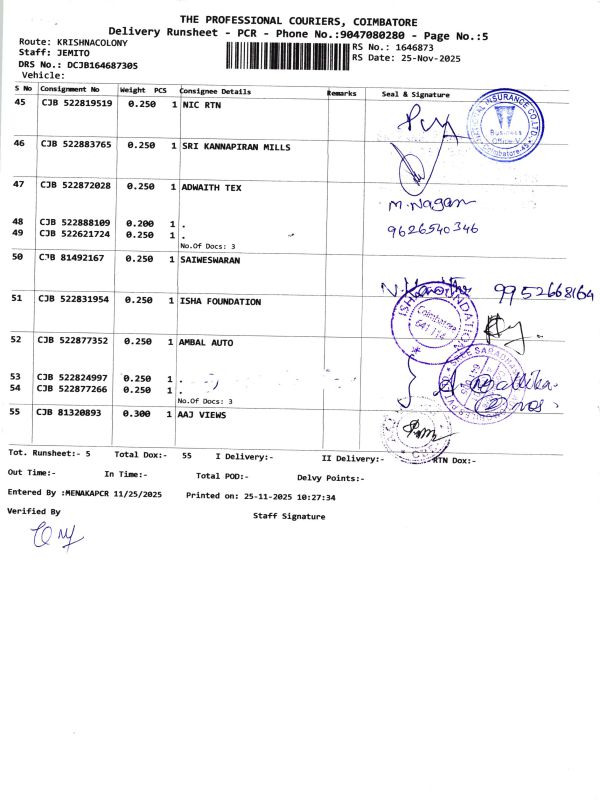 THE PROFESSIONAL COURIERS, COIMBATORE
Delivery Runsheet - PCR - Phone No.:9047080280 - Page No.:5
Route: KRISHNACOLONY
RS No.: 1646873
Staff: JEMITO
RS Date: 25-Nov-2025
DRS No.: DCJB1646873O5
Vehicle:
S No Consignment No Weight PCS Consignee Details Remarks Seal & Signature
45 CJB 522819519 0.250 1 NIC RTN
46 CJB 522883765 0.250 1 SRI KANNAPIRAN MILLS
47 CJB 522872028 0.250 1 ADWAITH TEX
M.Nagan
48 CJB 522888109 0.200 1 .
9626540346
49 CJB 522621724 0.250 1 .
No.Of Docs: 3
50 CJB 81492167 0.250 1 SAIWESWARAN
9952668164
51 CJB 522831954 0.250 1 ISHA FOUNDATION
ISHA FOUNDATION
Coimbatore
641 114
52 CJB 522877352 0.250 1 AMBAL AUTO
53 CJB 522824997 0.250 1 .
54 CJB 522877266 0.250 1 .
No.Of Docs: 3
55 CJB 81320893 0.300 1 AAJ VIEWS
Tot. Runsheet:- 5 Total Dox:- 55 I Delivery:- II Delivery:- RTN Dox:-
Out Time:- In Time:- Total POD:- Delvy Points:-
Entered By :MENAKAPCR 11/25/2025 Printed on: 25-11-2025 10:27:34
Verified By
Staff Signature